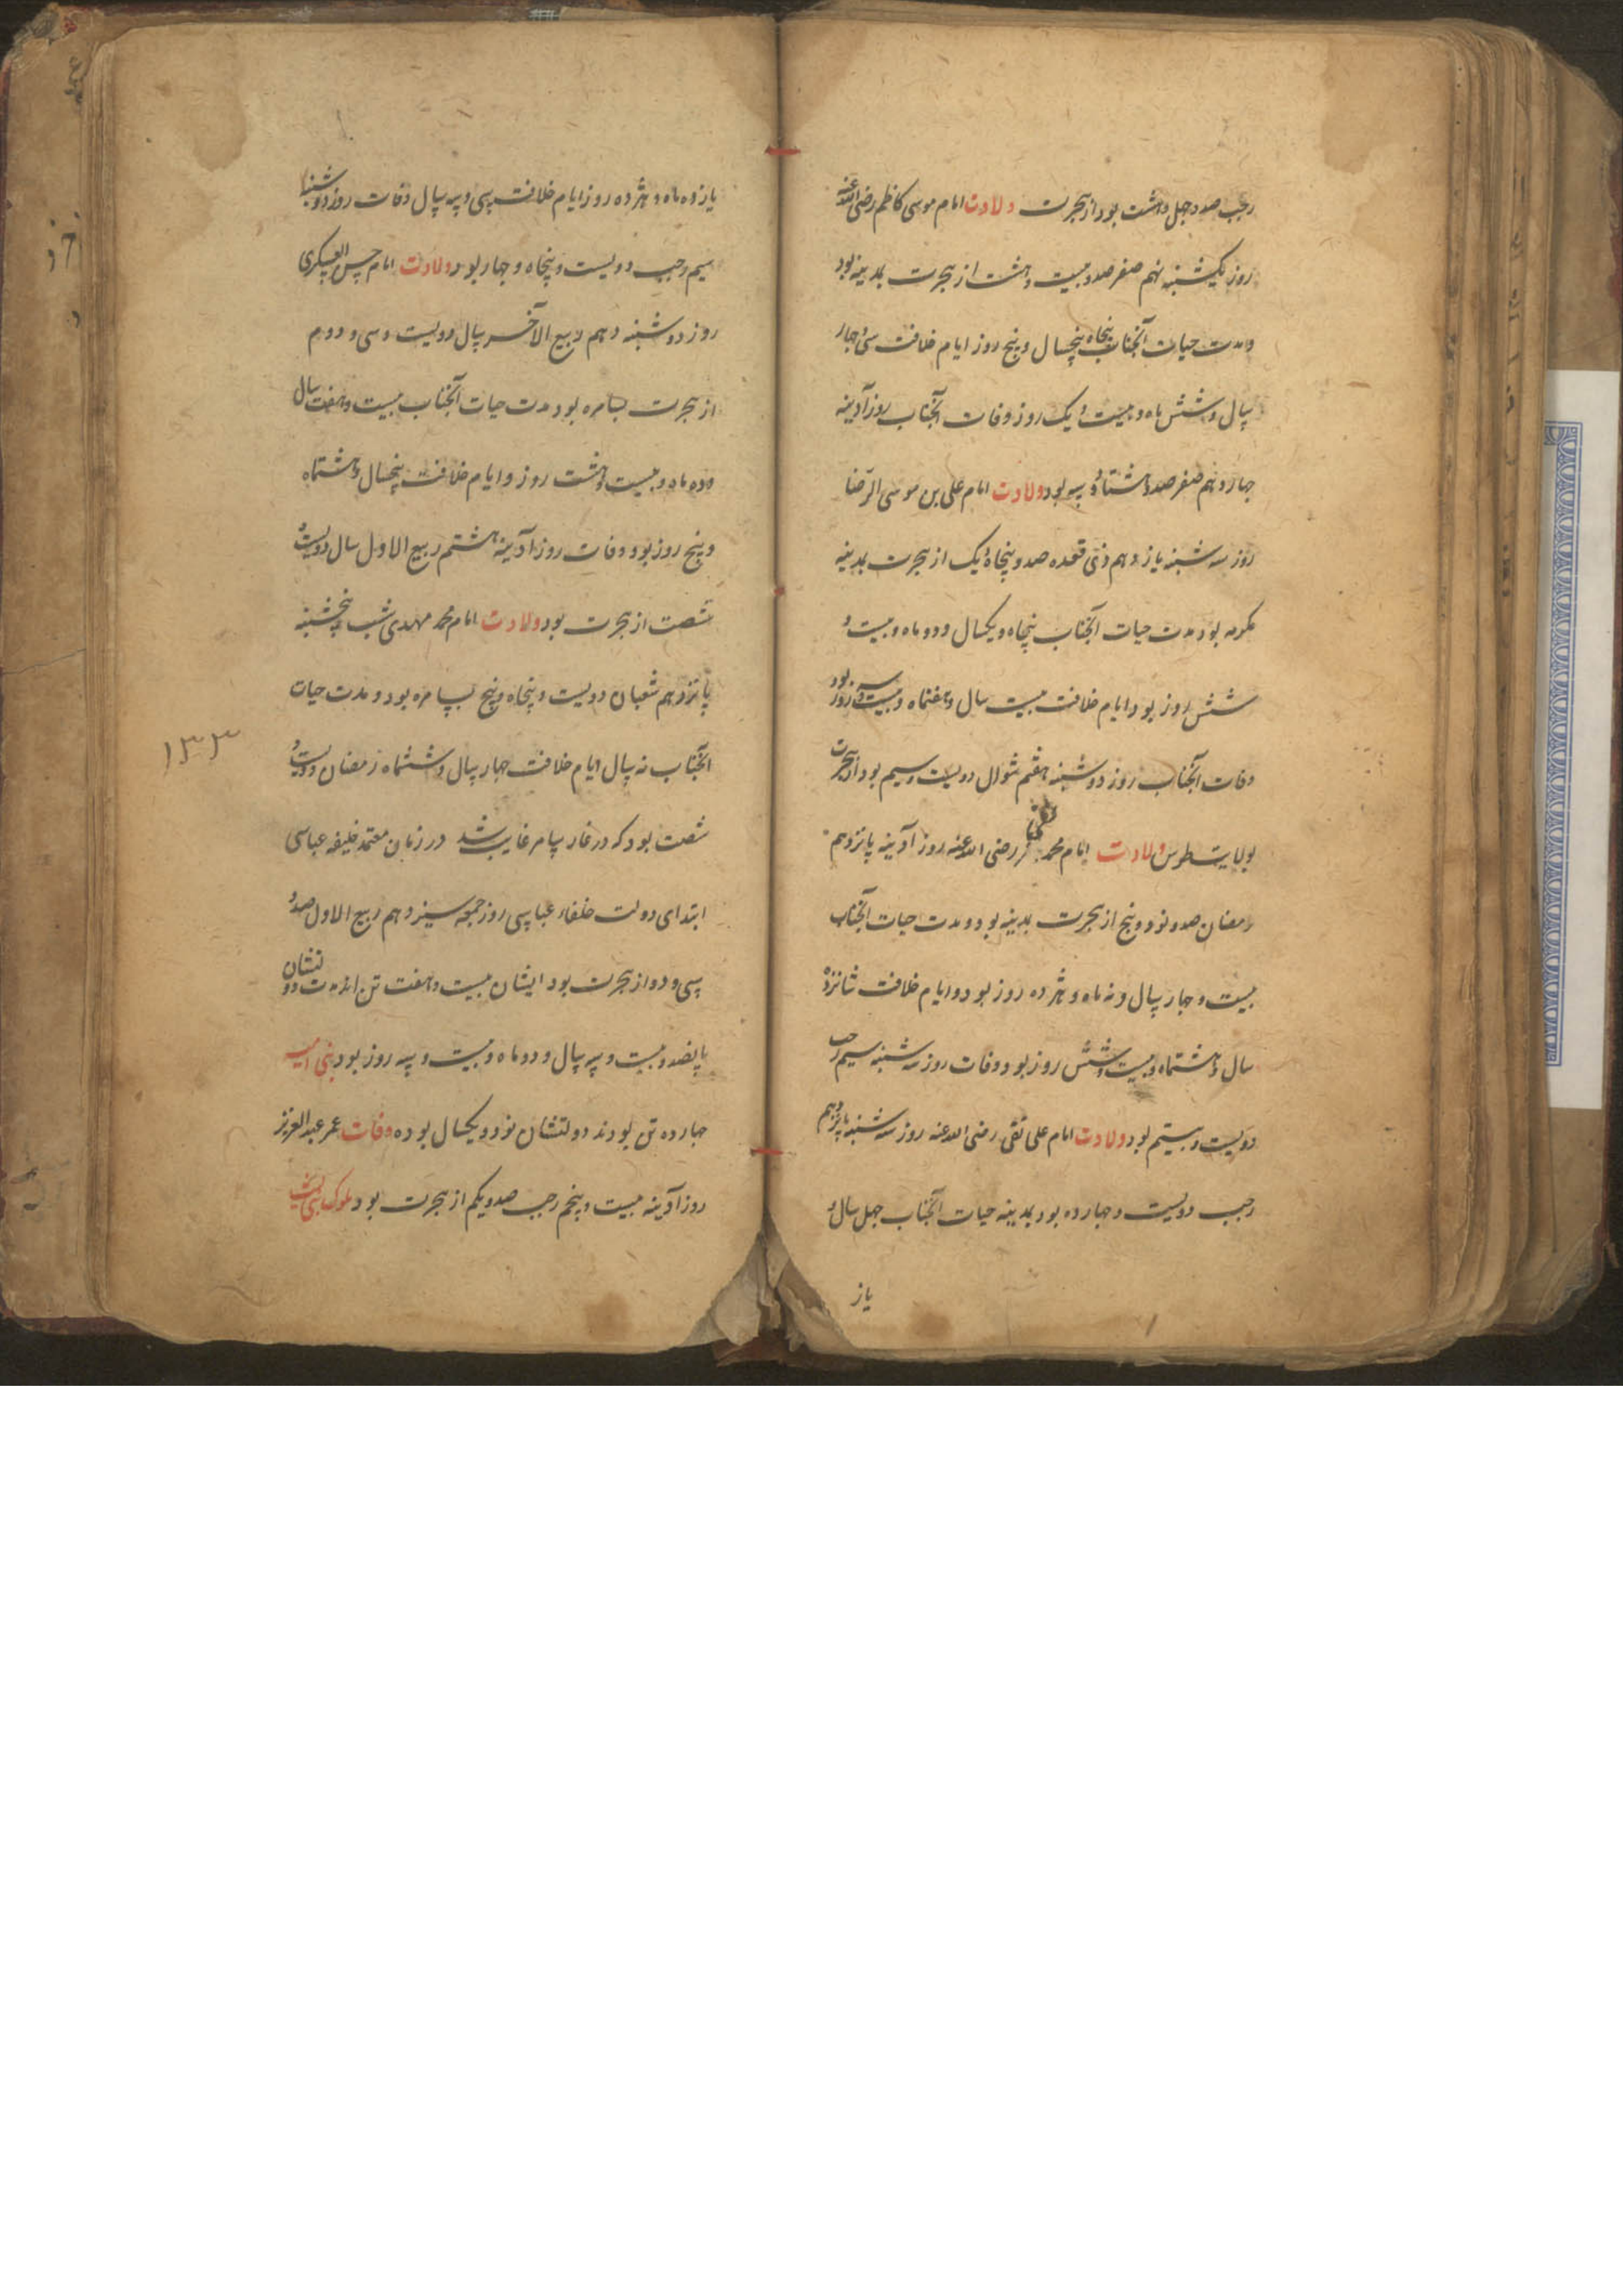 رجب صد و چهل و هشت بود از هجرت ولادت امام موسی کاظم رضی الله عنه
روز یکشنبه نهم صفر صد و بیست و هشت از هجرت بمدینه بود
و مدت حیات آنجناب پنجاه پنجسال و پنج روز ایام خلافت سی و چهار
سال و شش ماه و بیست و یک روز وفات آنجناب روز آدینه
چهاردهم صفر صد و هشتاد و سه بود ولادت امام علی بن موسی الرضا
روز سه شنبه یازدهم ذی قعده صد و پنجاه و یک از هجرت بمدینه
مکرمه بود مدت حیات آنجناب پنجاه و یکسال و دو ماه و بیست و
شش روز بود ایام خلافت بیست سال و هفتماه و بیست و سه روز بود
وفات آنجناب روز دوشنبه هفتم شوال دویست و سیم بود از هجرت
بولایت طوس ولادت امام محمد تقی رضی الله عنه روز آدینه پانزدهم
رمضان صد و نود و پنج از هجرت بمدینه بود و مدت حیات آنجناب
بیست و چهار سال و نه ماه و هژده روز بود و ایام خلافت شانزده
سال و هشتماه و بیست و شش روز بود وفات روز سه شنبه سیم رجب
دویست و بیستم بود ولادت امام علی نقی رضی الله عنه روز سه شنبه پانزدهم
رجب دویست و چهارده بود بمدینه حیات آنجناب چهل سال و
یاز
یازده ماه و هژده روز ایام خلافت سی و سه سال وفات روز دوشنبه
سیم رجب دویست و پنجاه و چهار بود ولادت امام حسن العسکری
روز دوشنبه دهم ربیع الآخر سال دویست و سی و دوم
از هجرت بسامره بود مدت حیات آنجناب بیست و هفت سال
و ده ماه و بیست و هشت روز و ایام خلافت پنجسال و هشتماه
و پنج روز بود وفات روز آدینه هشتم ربیع الاول سال دویست و
شصت از هجرت بود ولادت امام محمد مهدی شب پنجشنبه
پانزدهم شعبان دویست و پنجاه و پنج بسامره بود و مدت حیات
آنجناب نه سال ایام خلافت چهار سال و ششماه رمضان دویست و
شصت بود که در غار سامره غایب شد در زمان معتمد خلیفه عباسی
ابتدای دولت خلفاء عباسی روز جمعه سیزدهم ربیع الاول صد و
سی و دو از هجرت بود ایشان بیست و هفت تن اند مدت دولتشان
پانصد و بیست و سه سال و دو ماه و بیست و سه روز بود بنی امیه
چهارده تن بودند دولتشان نود و یکسال بوده وفات عمر عبدالعزیز
روز آدینه بیست و پنجم رجب صد و یکم از هجرت بود ملوک بنی لیث
۱۳۳